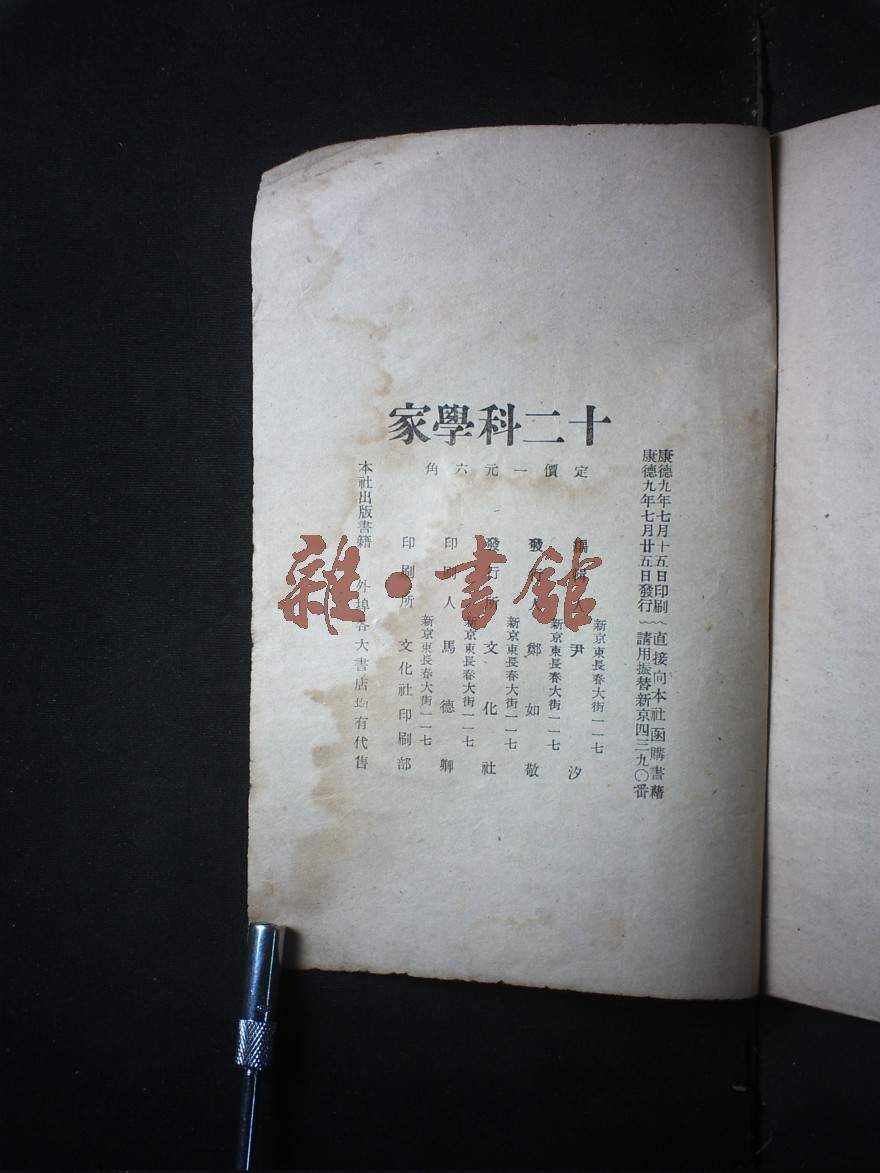 十二科學家
定價一元六角
康德九年七月十五日印刷
康德九年七月廿五日發行
直接向本社函購書籍
請用振替新京四三九〇番
新京東長春大街一一七
編輯人 尹汐
新京東長春大街一一七
發行人 鄭如敬
新京東長春大街一一七
發行所 文化社
新京東長春大街一一七
印刷人 馬德卿
印刷所 文化社印刷部
本社出版書籍 外埠各大書店均有代售
雜·書館